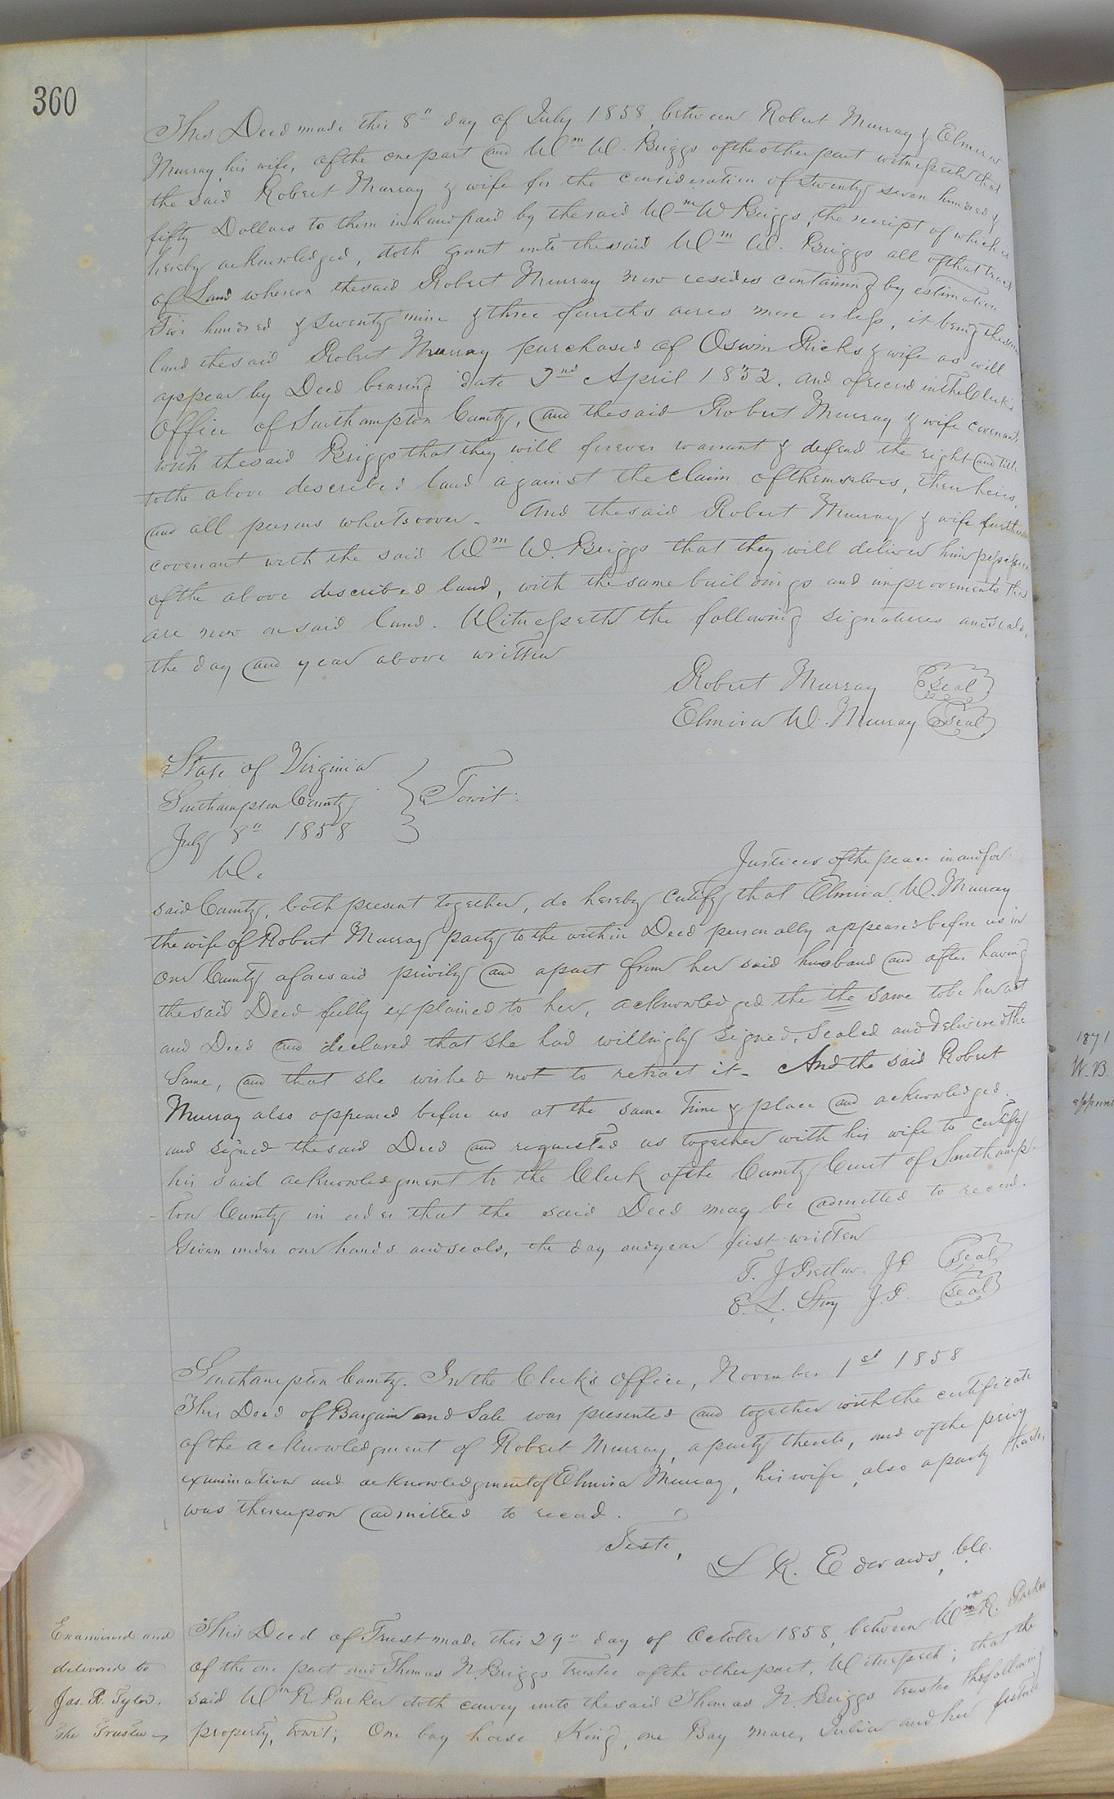 360
This Deed made this 8th day of July 1858, between Robert Murray & Elmira W
Murray, his wife, of the one part and Wm W. Briggs of the other part witnesseth that
the said Robert Murray & wife for the consideration of twenty seven hundred &
fifty Dollars to them in hand paid by the said Wm W Briggs, the receipt of which is
hereby acknowledged, doth grant unto the said Wm W. Briggs all of that tract
of Land whereon the said Robert Murray now resides containing by estimation
Two hundred & seventy nine & three fourths acres more or less, it being the same
land the said Robert Murray purchased of Oswin Ricks & wife as will
appear by Deed bearing date 2nd April 1852. and of record in the Clerk's
Office of Southampton County, and the said Robert Murray & wife covenant
with the said Briggs that they will forever warrant & defend the right and title
to the above described land against the claim of themselves, their heirs,
and all persons whatsoever. And the said Robert Murray & wife further
covenant with the said Wm W. Briggs that they will deliver him possession
of the above described land, with the same buildings and improvements that
are now on said land. Witnesseth the following signatures and seals,
the day and year above written
Robert Murray Seal
Elmira W. Murray Seal
State of Virginia
Southampton County Towit:
July 8th 1858
We. Justices of the peace in and for
said County, both present together, do hereby certify that Elmira W. Murray
the wife of Robert Murray party to the within Deed personally appeared before us in
our County aforesaid privily and apart from her said husband and after having
the said Deed fully explained to her, acknowledged the the same to be her act
and Deed and declared that she had willingly signed, sealed and delivered the
same, and that she wished not to retract it. And the said Robert
Murray also appeared before us at the same time & place and acknowledged
and signed the said Deed and requested us together with his wife to certify
his said acknowledgment to the Clerk of the County Court of Southamp-
ton County in order that the said Deed may be admitted to record.
Given under our hands and seals, the day and year first written
T. J Pretlow J P Seal
E. L. Story J P. Seal
Southampton County. In the Clerk's Office, November 1st 1858
This Deed of Bargain and Sale was presented and together with the certificate
of the acknowledgment of Robert Murray, a party thereto, and of the privy
examination and acknowledgment of Elmira Murray, his wife, also a party thereto,
was thereupon admitted to record.
Teste,
L R. Edwards, Clk.
Examined and
delivered to
Jas. R. Tyler.
The Trustee
This Deed of Trust made this 29th day of October 1858, between Wm R. Parker
of the one part and Thomas N Briggs Trustee of the other part, Witnesseth; that the
said Wm R Parker doth convey unto the said Thomas N. Briggs trustee the following
property, towit; One bay horse King, one Bay mare, Julia and her
1871
W. B.